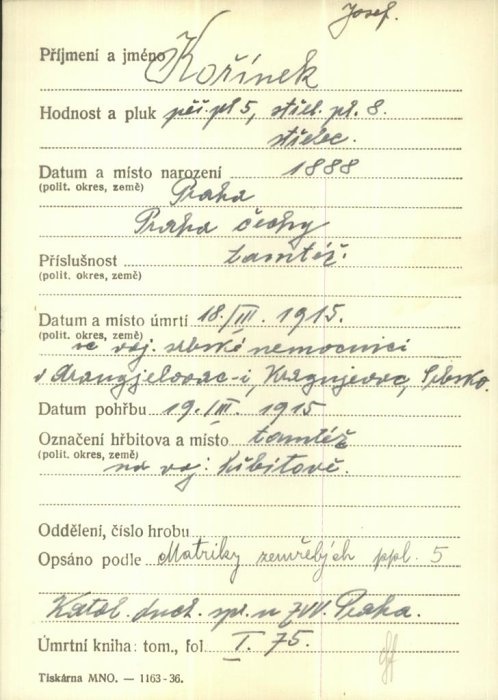 Josef.
Příjmení a jméno Kořínek
Hodnost a pluk pěš. pl 5, střel. pl. 8.
střelec.
Datum a místo narození 1888
(polit. okres, země) Praha
Praha čechy
Příslušnost tamtéž.
(polit. okres, země)
Datum a místo úmrtí 18./III. 1915.
(polit. okres, země) ve voj. srbské nemocnici
v Arangjelovac-i, Kragujevac, Srbsko.
Datum pohřbu 19./III. 1915
Označení hřbitova a místo tamtéž
(polit. okres, země) na voj. hřbitově.
Oddělení, číslo hrobu
Opsáno podle Matriky zemřelých ppl. 5
Katol. duch. spr. u ZVV. Praha.
Úmrtní kniha: tom., fol. I. 75.
Tiskárna MNO. — 1163-36.